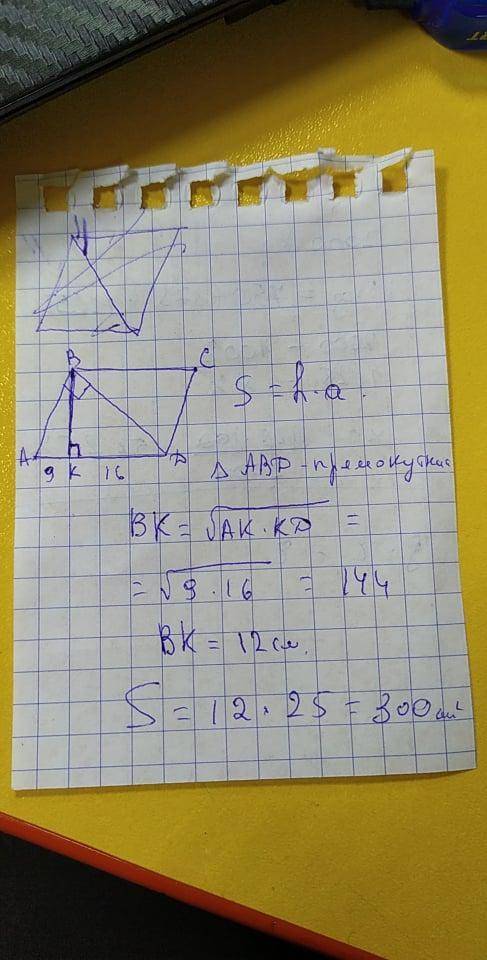 B C
A 9 K 16 D
S = h · a.
Δ ABD - прямокутник
BK = √AK · KD =
= √9 · 16 = 144
BK = 12 см.
S = 12 · 25 = 300 см²